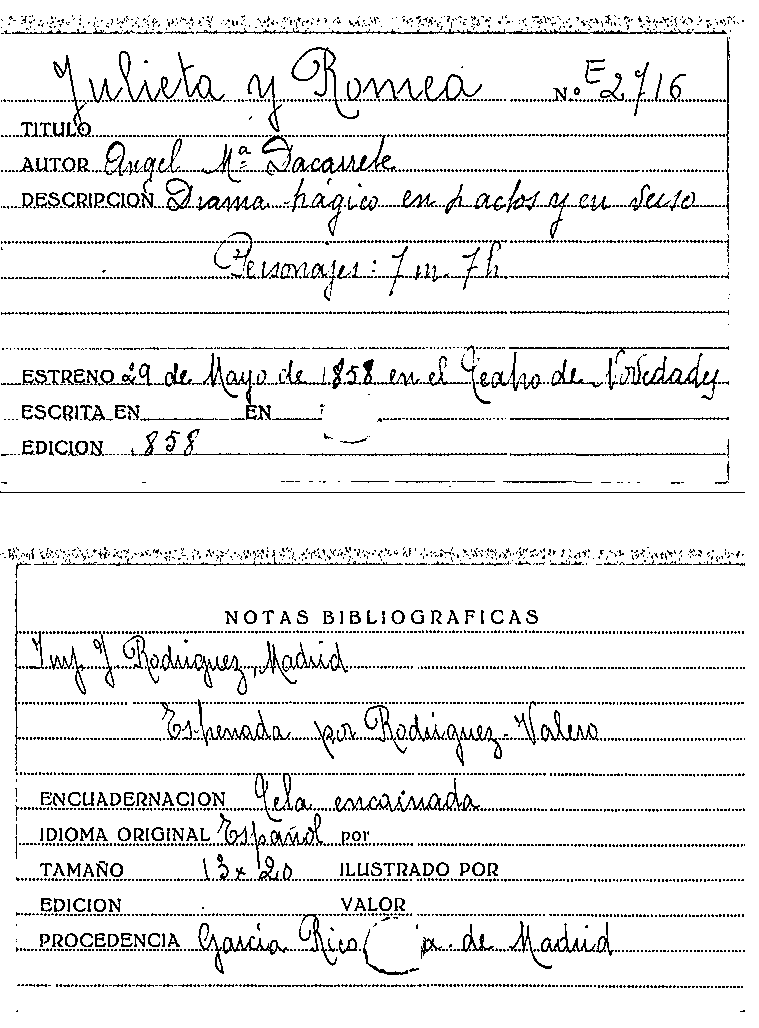 Julieta y Romeo Nº E 2716
TITULO
AUTOR Angel Mª Dacarrete
DESCRIPCION Drama trágico en actos y en verso
Personajes: 7 m. 7 h.
ESTRENO 29 de Mayo de 1858 en el Teatro de Novedades
ESCRITA EN EN
EDICION 1858
NOTAS BIBLIOGRAFICAS
Imp. J. Rodriguez, Madrid
Estrenada por Rodriguez-Valero
ENCUADERNACION Tela encarnada
IDIOMA ORIGINAL Español por
TAMAÑO 13 x 20 ILUSTRADO POR
EDICION VALOR
PROCEDENCIA Garcia Rico de Madrid